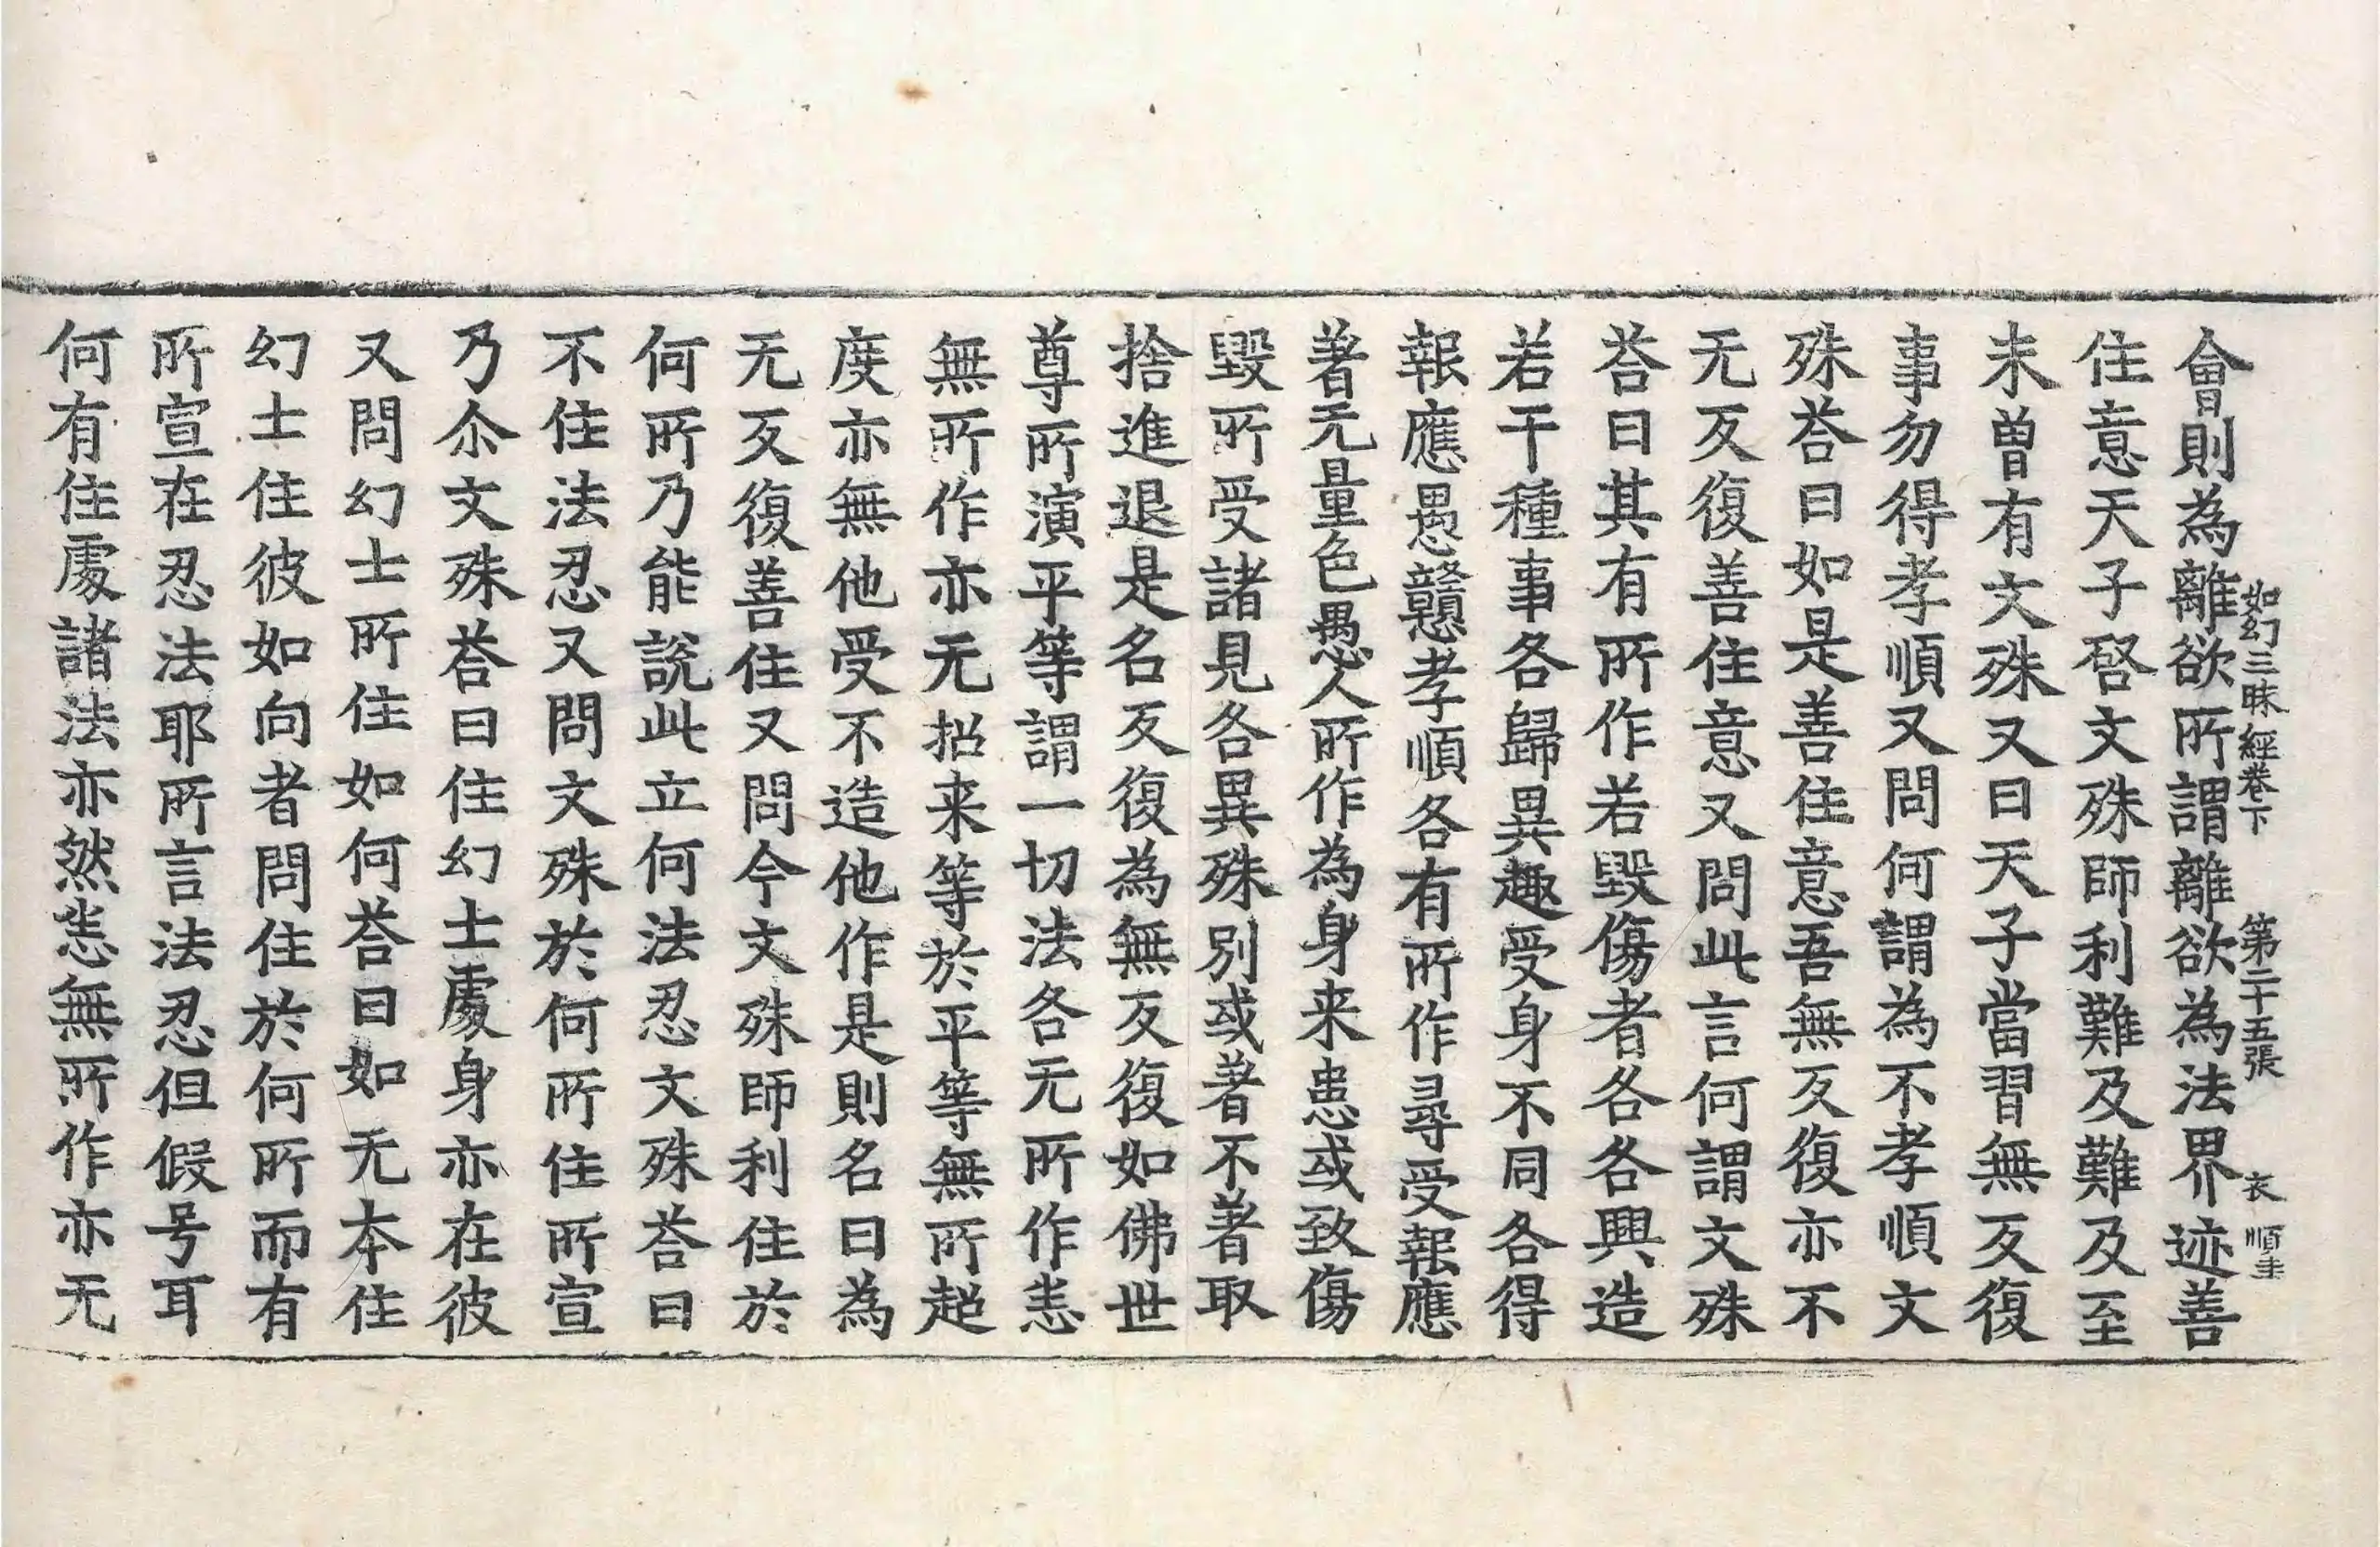 會則為離欲所謂離欲為法界迹善
如幻三昧經卷下 第二十五張 衣 順圭
住意天子啓文殊師利難及難及至
未曽有文殊又曰天子當習無反復
事勿得孝順又問何謂為不孝順文
殊荅曰如是善住意吾無反復亦不
无反復善住意又問此言何謂文殊
荅曰其有所作若毀傷者各各興造
若干種事各歸異趣受身不同各得
報應愚戇孝順各有所作尋受報應
著无量色愚人所作為身来患或致傷
毀所受諸見各異殊別或著不著取
捨進退是名反復為無反復如佛世
尊所演平等謂一切法各无所作恚
無所作亦无招来等於平等無所趣
度亦無他受不造他作是則名曰為
无反復善住又問今文殊師利住於
何所乃能說此立何法忍文殊荅曰
不住法忍又問文殊於何所住所宣
乃尒文殊荅曰住幻士處身亦在彼
又問幻士所住如何荅曰如无本住
幻士住彼如向者問住於何所而有
所宣在忍法耶所言法忍但假号耳
何有住處諸法亦然恚無所作亦无